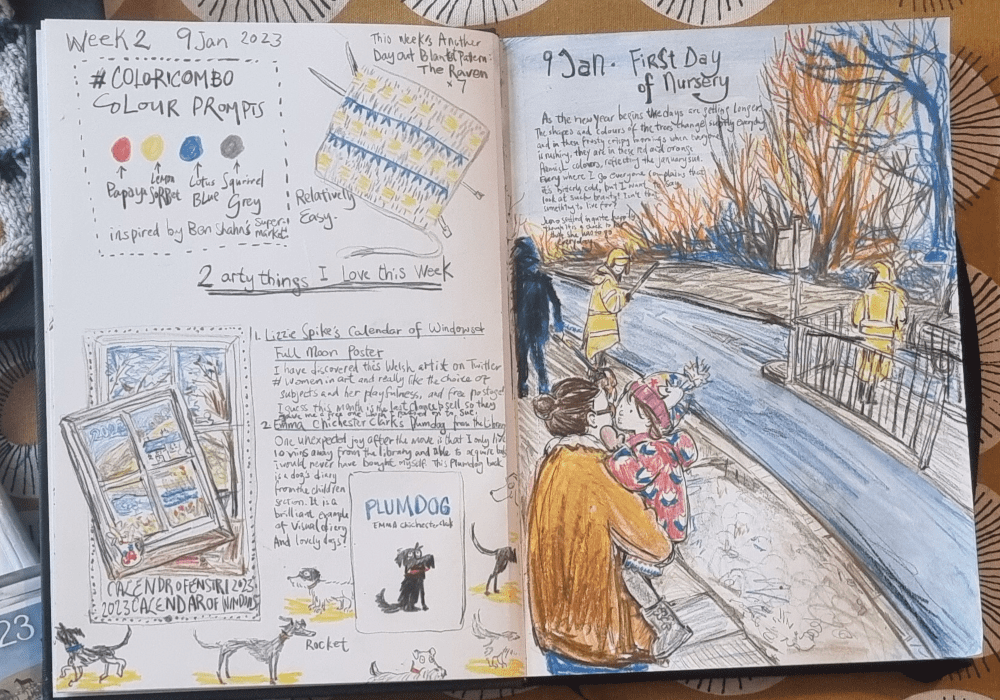 Week 2 9 Jan 2023
This Week's Another
Day out Blanket Pattern:
The Raven
x 7
#COLORICOMBO
COLOUR PROMPTS
Papaya Lemon Sorbet Lotus Blue Squirrel Grey
inspired by Ben Shahn's Supermarket
Relatively
Easy.
2 arty things I Love this Week
1. Lizzie Spike's Calendar of Windows and
Full Moon Poster
I have discovered this Welsh artist on Twitter
# women in art and really like the choice of
subjects and her playfulness, and free postage
I guess this month is the last chance to sell so they
gave me a free one which I passed to Sue.
2. Emma Chichester Clark's Plumdog from the Library
One unexpected joy after the move is that I only live
10 mins away from the library and able to acquire books
I would never have bought myself. This Plumdog book
is a dog's diary
from the children
section. It is a
brilliant example
of visual diary
And lovely dogs!
PLUMDOG
EMMA chichester clark
CALENDR O FENSTRI 2023
2023 CALENDAR OF WINDOWS
Rocket
23
9 Jan - First Day
of Nursery
As the new year begins the days are getting longer.
The shapes and colours of the trees change subtly everyday
and in then frosty crispy mornings when everyone
is rushing, they are in these red and orange
flamish colours, reflecting the January sun.
Every where I go everyone complains that
it's bitterly cold, but I want to say
look at such beauty! Isn't this
something to live for?
everyday